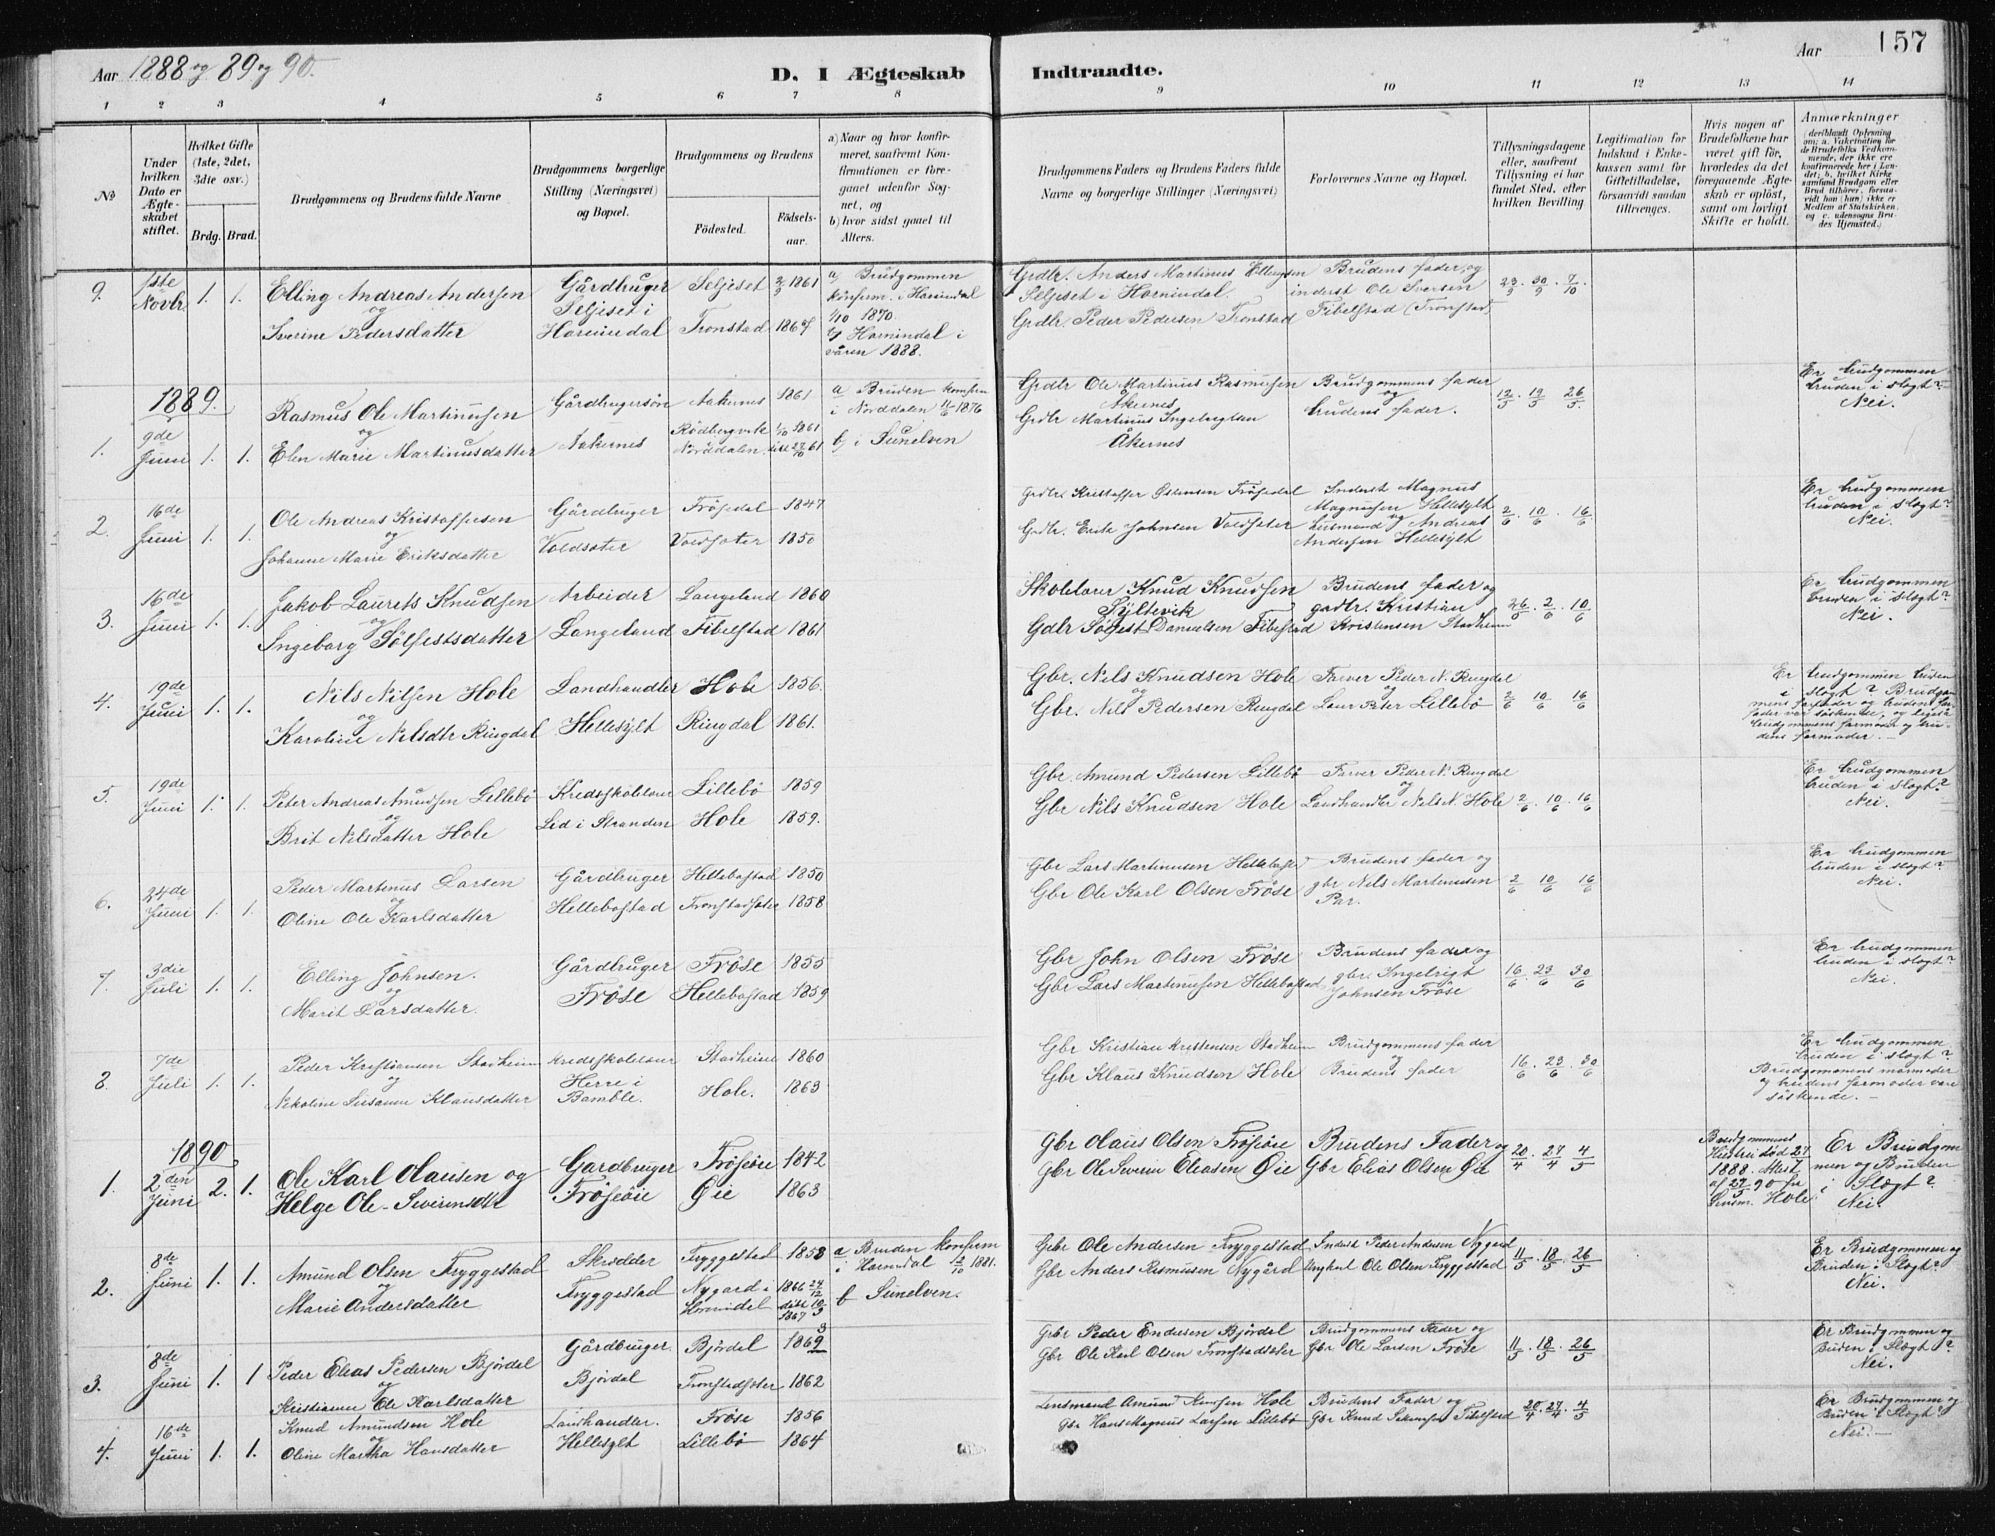 Aar 1888 og 89 og 90.
D. I Ægteskab Indtraadte.
Aar 157
1 2 3 4 5 6 7 8 9 10 11 12 13 14
No
Under hvilken Dato er Ægteskabet stiftet.
Hvilket Gifte (1ste, 2det, 3die osv.)
Brdg. Brud.
Brudgommens og Brudens fulde Navne
Brudgommens borgerlige Stilling (Næringsvei) og Bopæl.
Brudgommens og Brudens
Fødested. Fødselsaar.
a) Naar og hvor konfirmeret, saafremt Konfirmationen er foregaaet udenfor Sognet, og
b) hvor sidst gaaet til Alters.
Brudgommens Faders og Brudens Faders fulde Navne og borgerlige Stillinger (Næringsvei)
Forlovernes Navne og Bopæl.
Tillysningsdagene eller, saafremt Tillysning ei har fundet Sted, efter hvilken Bevilling
Legitimation for Indskud i Enkekassen samt for Giftetilladelse, forsaavidt saadan tiltrænges.
Hvis nogen af Brudefolkene har været gift før, hvorledes da det foregaaende Ægteskab er opløst, samt om lovligt Skifte er holdt.
Anmærkninger
(deriblandt Oplysning om: a. Vakcination for de Brudefolks Vedkommende, der ikke ere konfirmerede her i Landet; b. hvilket Kirkesamfund Brudgom eller Brud tilhører, forsaavidt han (hun) ikke er Medlem af Statskirken, og c. udensogns Brudes Hjemsted.)
9. 1ste Novbr. 1. 1. Elling Andreas Andersen og Sverine Pedersdatter
Gårdbruger Seljeset i Hornindal
Seljeset 2/9 1861
Tronstad 1867
a) Brudgommen konfirm. i Hornindal 1/10 1870.
b) Hornindal i våren 1888.
Grdbr. Anders Martinus Ellingsen Seljeset i Hornindal.
Grdbr. Peder Pedersen Tronstad
Brudens fader og inderst Ole Iversen Fibelstad (Tronstad)
23/9 . 30/9 . 7/10 .
1889.
1. 9de Juni 1. 1. Rasmus Ole Martinusen og Elen Marie Martinusdatter
Gårdbrugersøn Aakernes
Aakernes 1861
Rødbergvik Norddalen 1/10 1861 dibt 27/10 61
a Bruden konfirm i Norddalen 11/6 1876
b/ i Sunelven
Grdbr Ole Martinus Rasmusen Åkernes
Grdbr Martinus Ingebrigtsen Åkernes
Brudgommens fader og brudens fader.
12/5 . 19/5 26/5.
Er brudgommen bruden i slægt? Nei.
2. 16de Juni 1. 1. Ole Andreas Kristoffersen og Johanne Marie Eriksdatter
Gårdbruger Voldsæter
Frøsedal 1847
Voldsæter 1850
Grdbr. Kristoffer Østensen Frøsedal
Grdbr. Erik Johnsen Voldsæter
Inderst Magnus Magnusen Hellesylt Husmand og Andreas Andersen Hellesylt
2/6 . 10/6 . 16/6
Er brudgommen bruden i slægt? Nei.
3. 16de Juni 1. 1. Jakob Laurits Knudsen og Ingeborg Sølfestsdatter
Arbeider Langeland
Langeland 1860
Fibelstad 1861
Skolelærer Knud Knudsen Syltevik
Gdbr Sølfest Danielsen Fibelstad
Brudens fader og grdbr. Kristian Kristensen Stadheim
26/5 . 2/6 . 10/6
Er brudgommen bruden i slægt? Nei.
4. 19de Juni 1. 1. Nils Nilsen Hole og Karoline Nilsdtr Ringdal
Landhandler Hellesylt
Hole 1856.
Ringdal 1861.
Gbr. Nils Knudsen Hole og
Gbr. Nils Pedersen Ringdal
Farver Peder N. Ringdal og Lærer Peter Lillebø
2/6 10/6 16/6
Er brudgommen bruden i slægt? Brudgommens farfader og brudens farfader var søskende, og ligeså brudgommens farmoder og brudens farmoder. –
5. 19de Juni 1. 1. Peter Andreas Amundsen Lillebø og Brit Nilsdatter Hole
Kredsskolelærer Lid i Stranden
Lillebø 1859
Hole 1859.
Gbr. Amund Pedersen Lillebø
Gbr Nils Knudsen Hole
Farver Peder N. Ringdal og Landhandler Nils N. Hole
2/6 10/6 16/6
Er brudgommen bruden i slægt? Nei.
6. 24de Juni 1. 1. Peder Martinus Larsen og Oline Ole Karlsdatter
Gårdbruger Hellebostad
Hellebostad 1850
Tronstadsæter 1858
Gbr Lars Martinusen Hellebostad
Gbr Ole Karl Olsen Frøse
Brudens fader og gbr Nils Martinusen Par.
2/6 10/6 16/6
Er brudgommen bruden i slægt? Nei.
7. 3die Juli 1. 1. Elling Johnsen. og Marit Larsdatter.
Gårdbruger Frøse
Frøse 1855
Hellebostad 1859
Gbr John Olsen Frøse
Gbr Lars Martinusen Hellebostad
Brudens fader og gbr. Ingebrigt Johnsen Frøse
16/6 . 23/6 30/6
Er brudgommen bruden i slægt? Nei.
8. 7de Juli 1. 1. Peder Kristiansen Stadheim og Nikoline Susanne Klausdatter
Kredsskolelærer Herre i Bamble.
Stadheim 1860
Hole. 1863
Gbr Kristian Kristensen Stadheim
Gbr Klaus Knudsen Hole
Brudgommens fader og Brudens fader
16/6 . 23/6 . 30/6
Er brudgommen bruden i slægt? Brudgommens mormoder og brudens farmoder vare søskende. –
1890
1. 2den Juni 2. 1. Ole Karl Olausen og Helge Ole-Severinsdtr
Gardbruger Frøseøie
Frøseøie 1842
Øie 1863
Gbr Olaus Olsen Frøseøie
Gbr Ole Severin Eliasen Øie
Brudens Fader og Gbr Elias Olsen Øie
20/4 . 27/4 4/5
Brudgommens Hustru død 27/7 1888. Attest af 29/5 90 fra Lensm. Hole
Er Brudgommen og Bruden i Slægt? Nei.
2. 8de Juni 1. 1. Amund Olsen Tryggestad og Marie Andersdatter
Skrædder Tryggestad
Tryggestad 1858
Nygard i Hornindal 1866 24/12 dibt 10/3 1867
a Bruden konfirm i Hornindal 12/10 1881.
b Sunelven.
Gbr Ole Andersen Tryggestad
Gbr Anders Rasmusen Nygård
Inderst Peder Andersen Nygard
Ungkarl Ole Olsen Tryggestad
11/5 . 18/5 . 26/5
Er Brudgommen og Bruden i Slægt? Nei.
3. 8de Juni 1. 1 Peder Elias Pedersen Bjørdal og Kristianne Ole Karlsdatter
Gårdbruger Bjørdal
Bjørdal 1869 3
Tronstadsæter 1862
Gbr Peder Endresen Bjørdal
Gbr Ole Karl Olsen Tronstadsæter
Brudgommens Fader og Gbr Ole Larsen Frøse
11/5 . 18/5 . 26/5
Er Brudgommen og Bruden i Slægt? Nei.
4. 16de Juni 1. 1. Knud Amundsen Hole og Oline Martha Hansdatter
Landhandler. Hellesylt
Frøse 1856
Lillebø 1864
Lensmand Amund Knudsen Hole
Gbr Hans Magnus Larsen Lillebø
Brudens Fader og Gbr Knud Fibelstad
20/4 . 27/4 . 4/5
Er Brudgommen og Bruden i Slægt? Nei. –